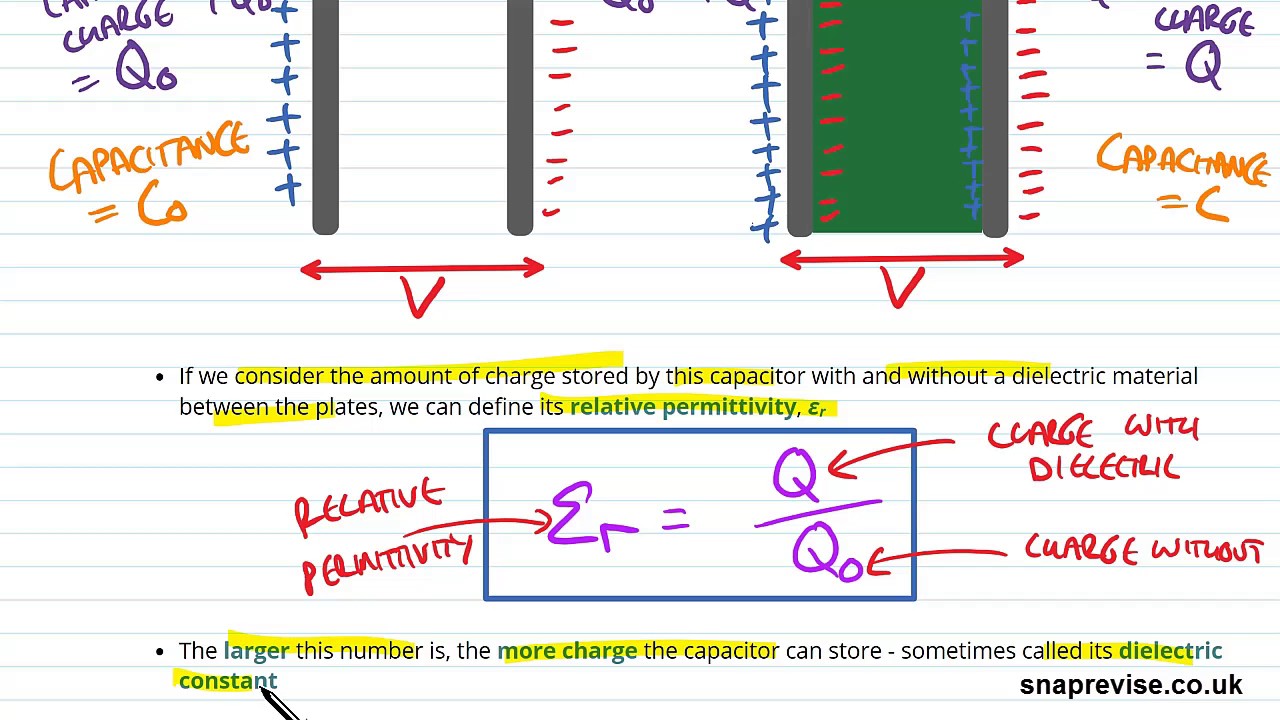 CHARGE
= Q₀
CAPACITANCE
= C₀
V
CHARGE
= Q
CAPACITANCE
= C
V
• If we consider the amount of charge stored by this capacitor with and without a dielectric material
between the plates, we can define its relative permittivity, εᵣ
RELATIVE
PERMITTIVITY
Σr = Q / Q₀
CHARGE WITH
DIELECTRIC
CHARGE WITHOUT
• The larger this number is, the more charge the capacitor can store - sometimes called its dielectric
constant
snaprevise.co.uk